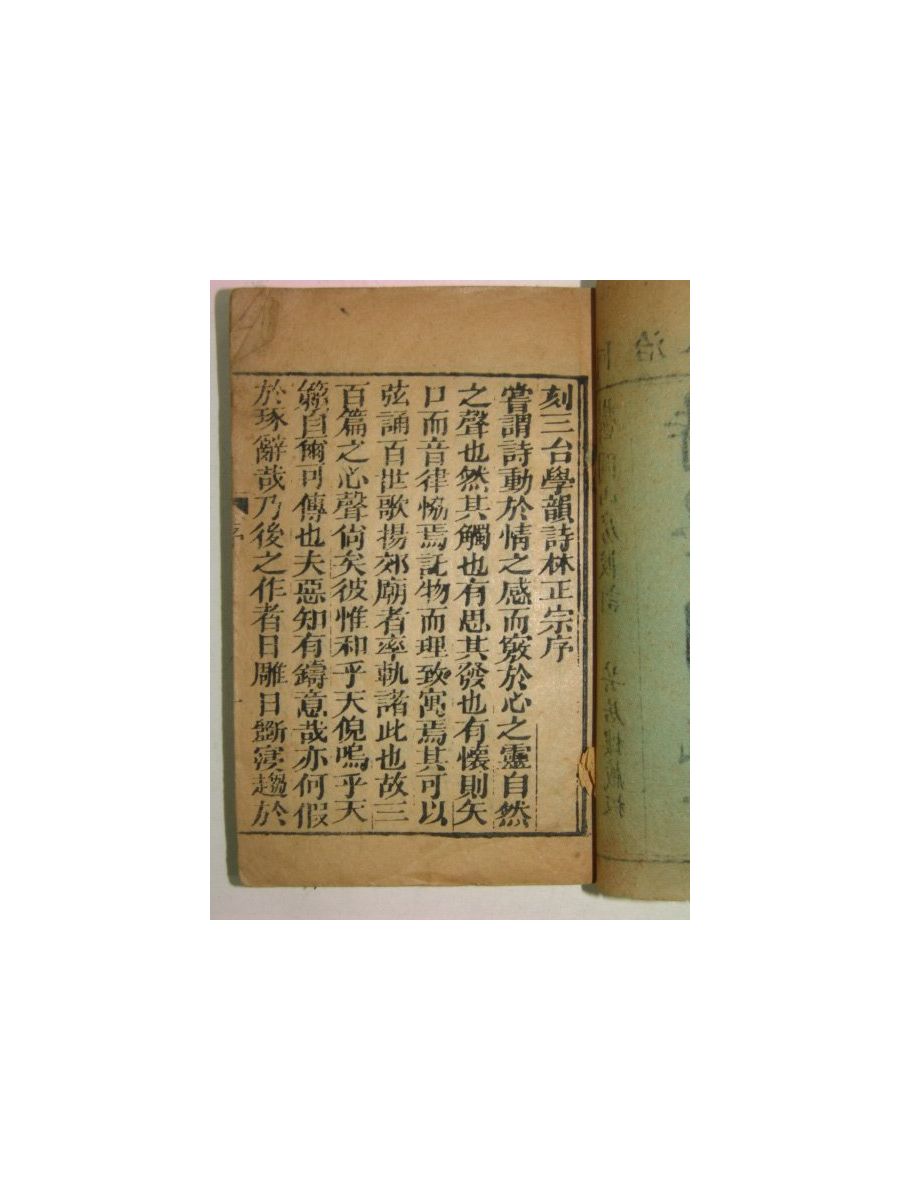 刻三台學韻詩林正宗序
嘗謂詩動於情之感而竅於心之靈自然
之聲也然其觸也有思其發也有懷則矢
口而音律恊焉託物而理致寓焉其可以
弦誦百世歌揚郊廟者率軌諸此也故三
百篇之心聲尙矣彼惟和乎天倪鳴乎天
籟自爾可傳也夫惡知有鑄意哉亦何假
於琢辭哉乃後之作者日雕日斵寖趨於
序